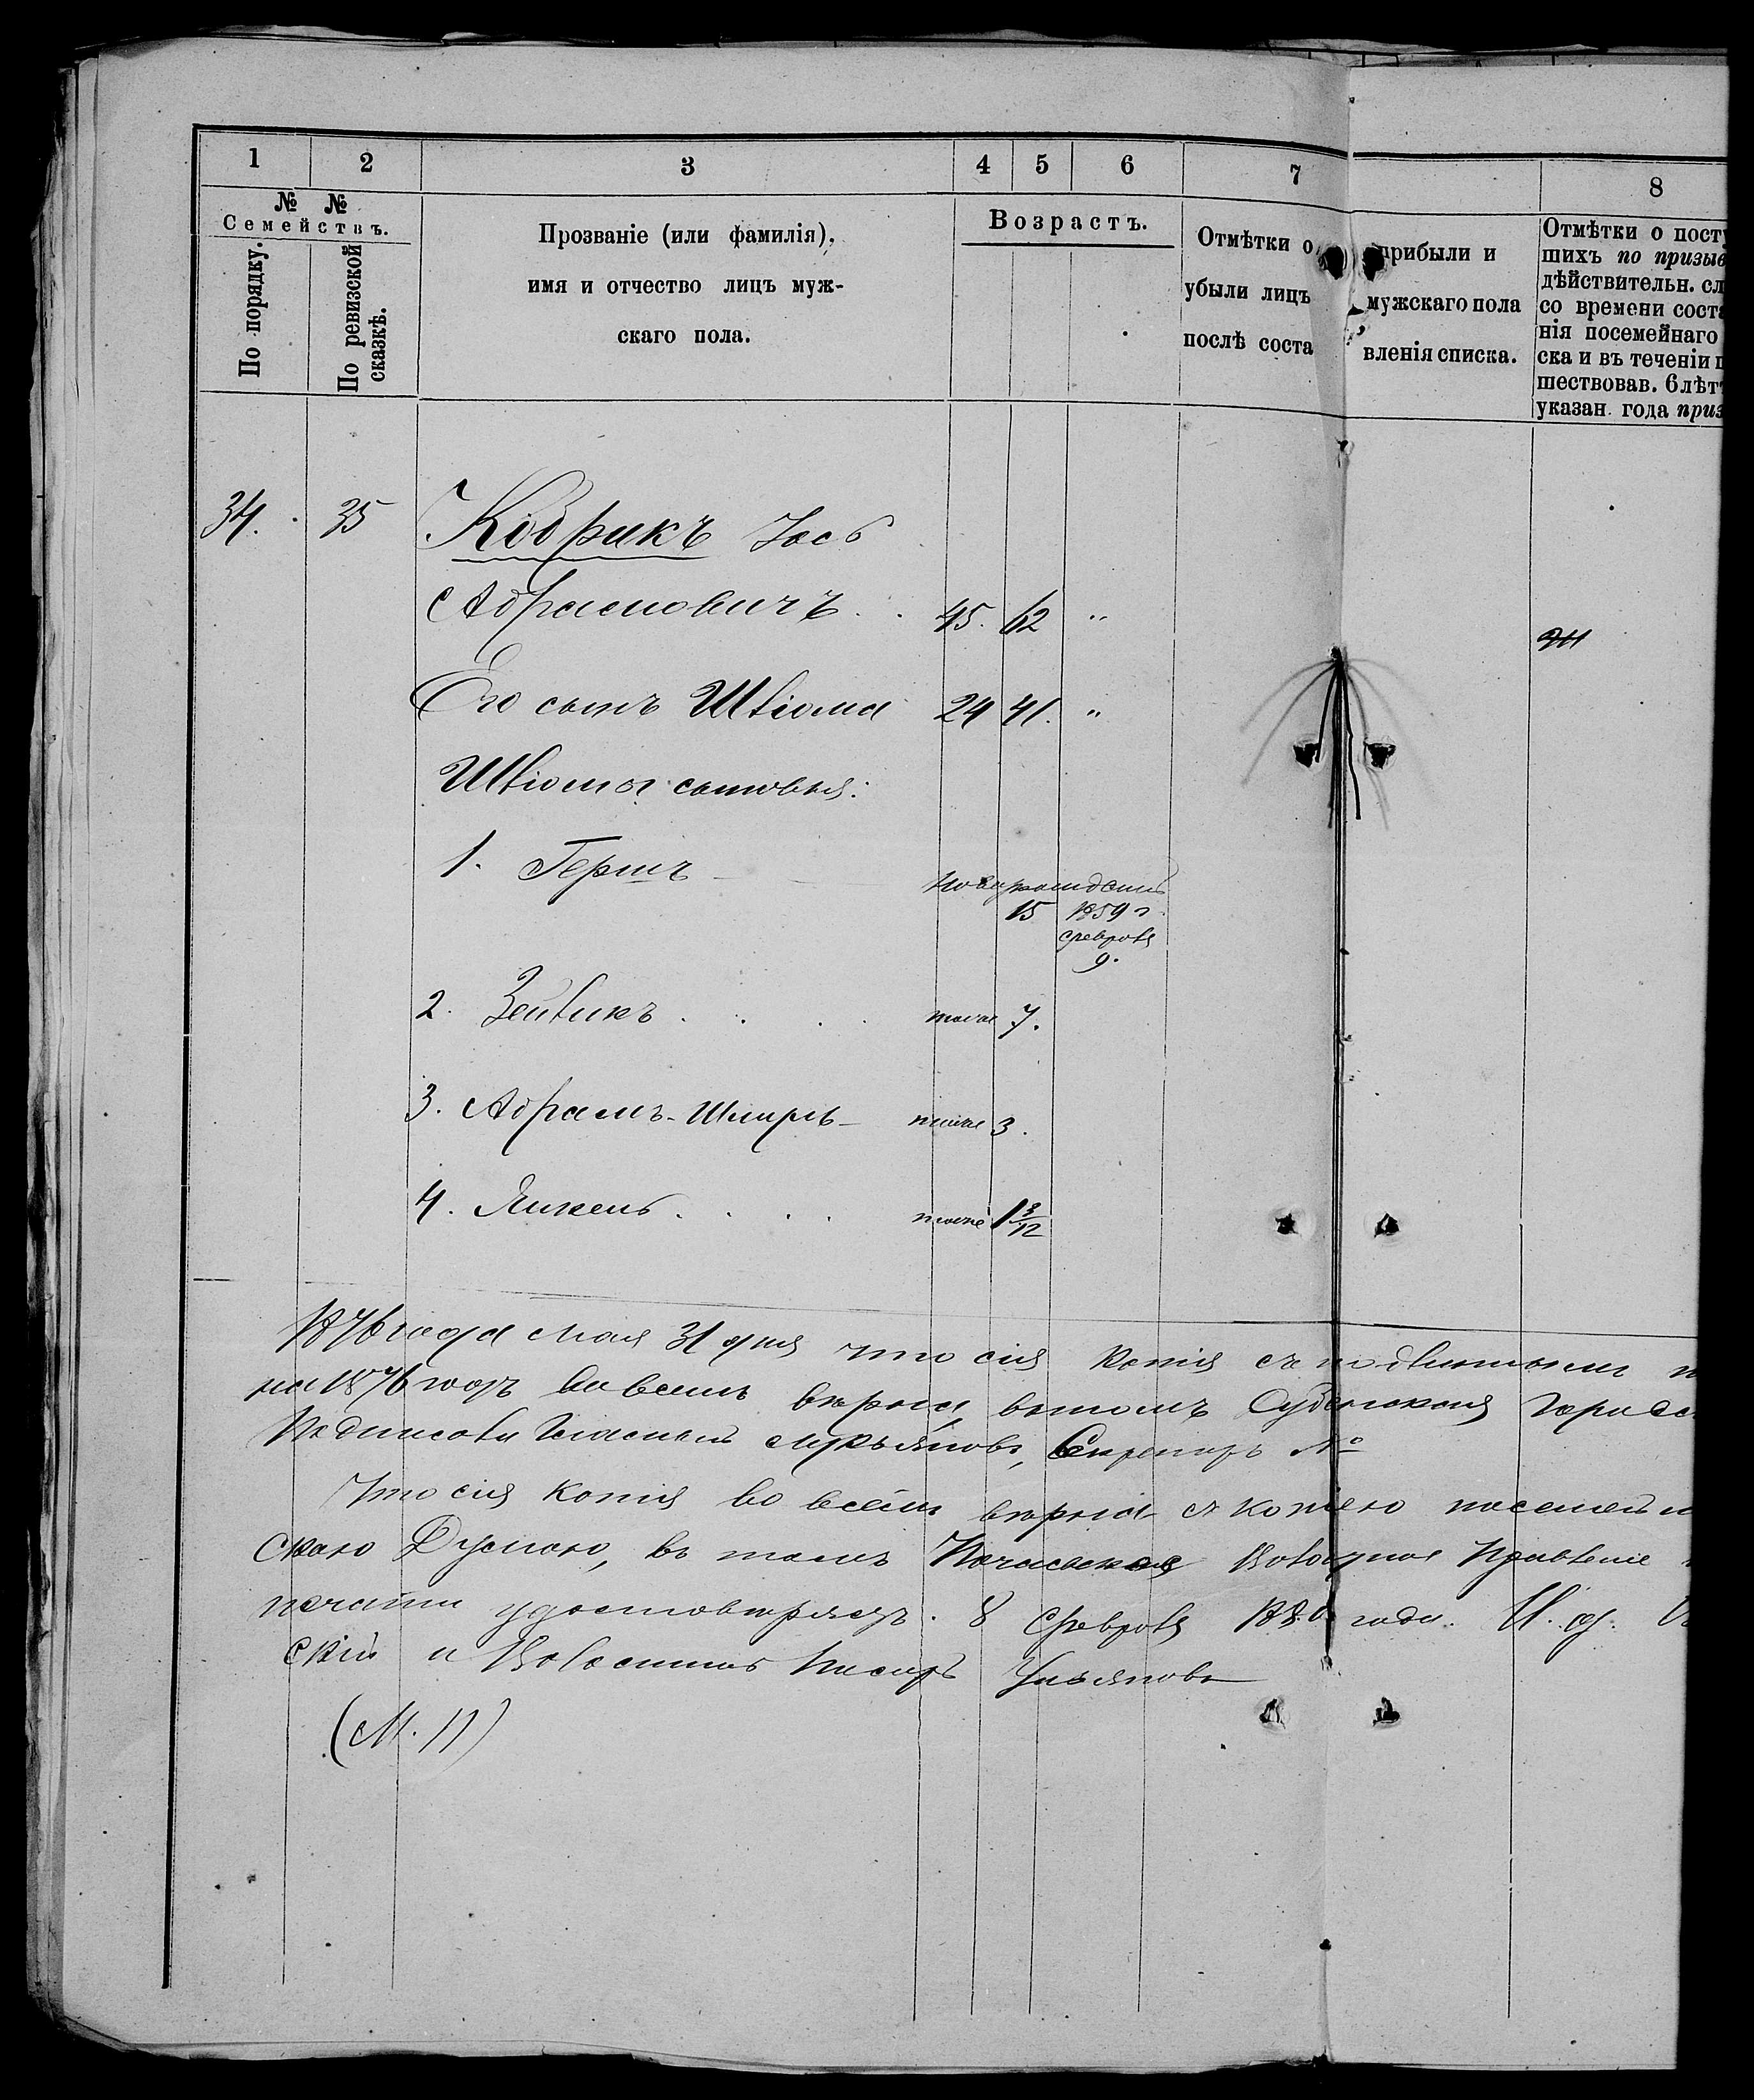 1 2 3 4 5 6 7 8
№ №
Семействъ.
По порядку.
По ревизской
сказкѣ.
Прозваніе (или фамилія),
имя и отчество лицъ муж-
скаго пола.
Возрастъ.
Отмѣтки о прибыли и
убыли лицъ мужскаго пола
послѣ соста вленія списка.
Отмѣтки о посту
шихъ по призыв
дѣйствительн. сл
со времени соста
нія посемейнаго
ска и въ теченіи п
шествовав. 6 лѣтъ
указан. года приз
34. 35 Кобрикъ Іось
Абрамовичъ . . 45. 62 "
Его сынъ Шліома 24 41. "
Шліомы сыновья:
1. Гершъ новорожденъ
15 1859 г.
февраля
9.
2. Зейликъ . . . . тоже 7.
3. Абрамъ-Шмуль тоже 3.
4. Янкель . . . . тоже 1 3/12
1876 года мая 31 дня что сія копія съ подлиннымъ
на 1876 годъ во всемъ вѣрна, вътомъ
Подписали Гласный Лукьяновъ, Секретарь №
Что сія копія во всемъ вѣрна съ копіею посемейн
скою Думою, въ томъ Почаевское Волостное Правленіе
печати удостовѣряетъ. 8 Февраля года. И. д.
скій и Волостной Писарь Ульяновъ
(М. П)